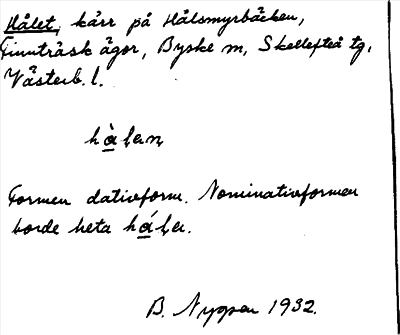 Hålet, kärr på Hålsmyrbäcken,
Finnträsk ägor, Byske m, Skellefteå tg,
Västerb. l.
hàḷen
Formen dativform. Nominativformen
borde heta háḷa.
B. Nygren 1932.